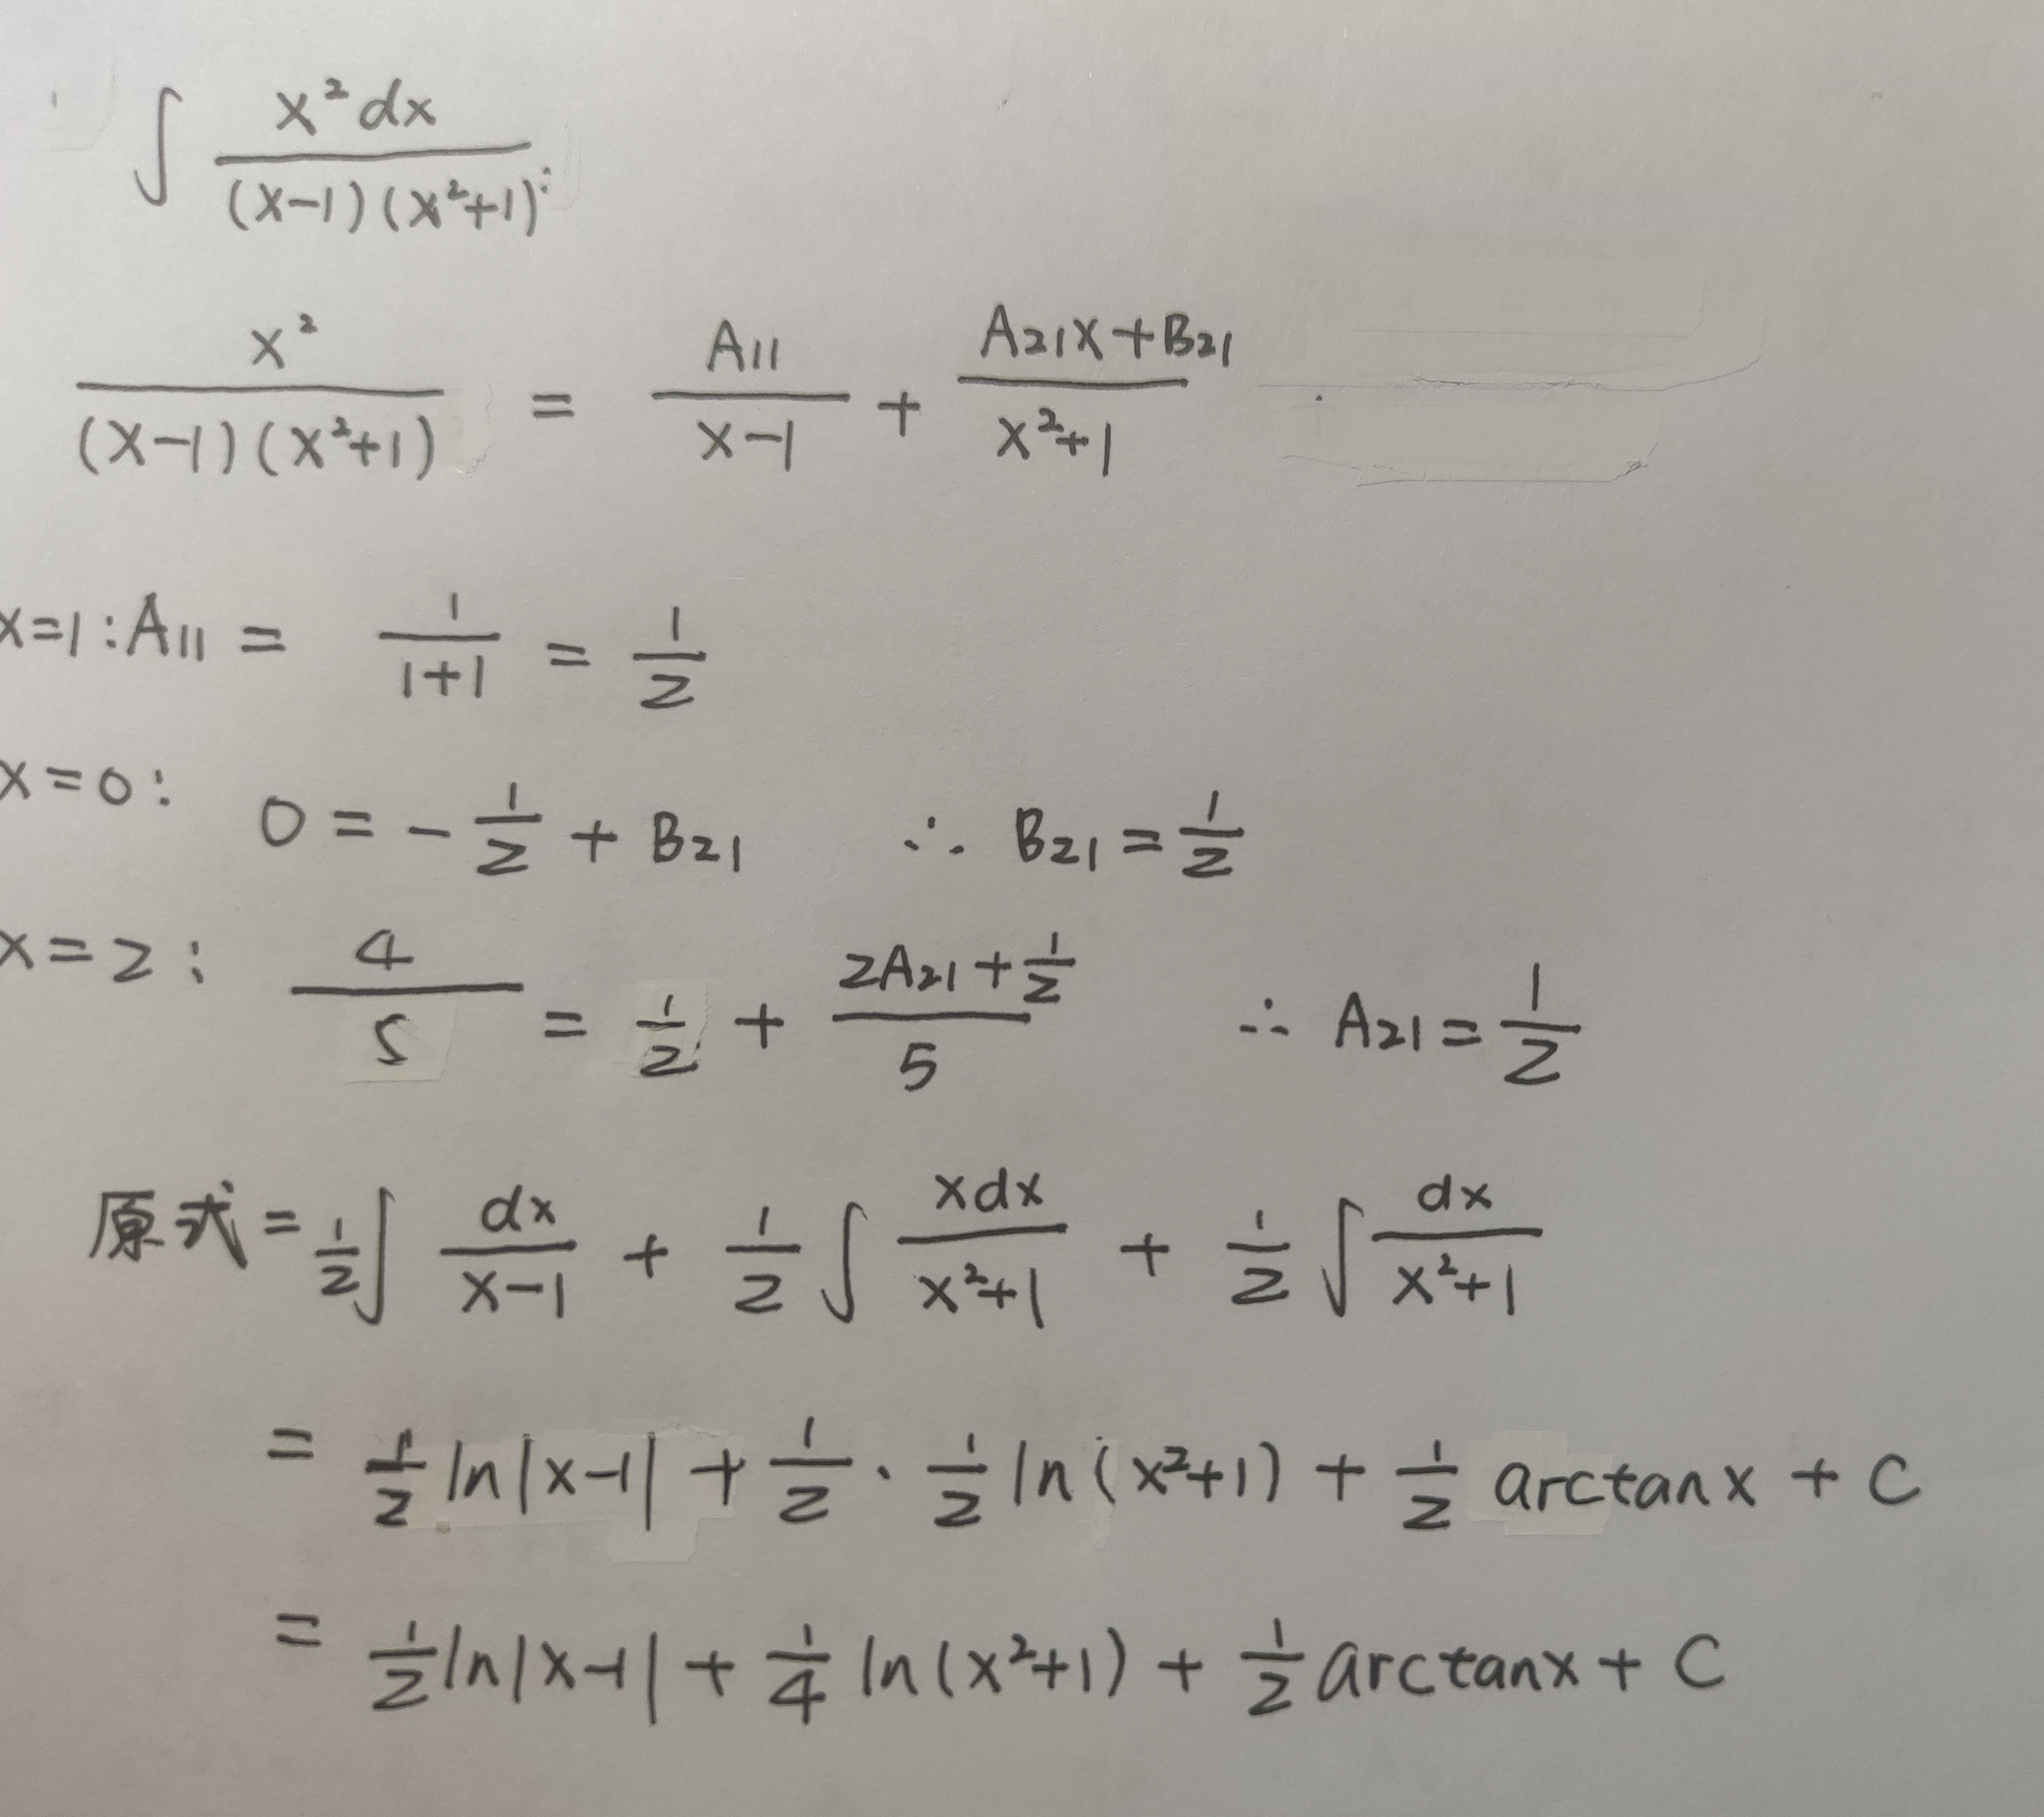 ∫ x² dx / (x-1)(x²+1)
x² / (x-1)(x²+1) = A₁₁ / x-1 + A₂₁x+B₂₁ / x²+1
x=1: A₁₁ = 1/1+1 = 1/2
x=0: 0 = - 1/2 + B₂₁ ∴ B₂₁ = 1/2
x=2: 4/5 = 1/2 + 2A₂₁+1/2 / 5 ∴ A₂₁ = 1/2
原式 = 1/2 ∫ dx / x-1 + 1/2 ∫ xdx / x²+1 + 1/2 ∫ dx / x²+1
= 1/2 ln|x-1| + 1/2 · 1/2 ln(x²+1) + 1/2 arctanx + C
= 1/2 ln|x-1| + 1/4 ln(x²+1) + 1/2 arctanx + C